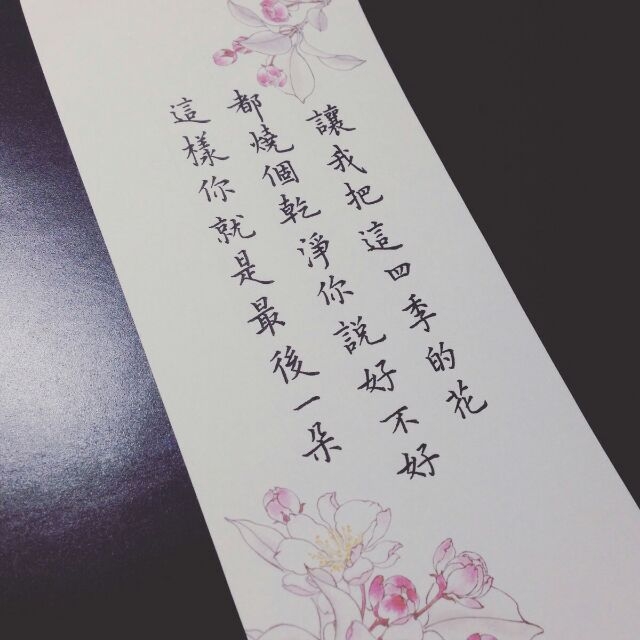 讓我把這四季的花
都燒個乾淨你說好不好
這樣你就是最後一朵